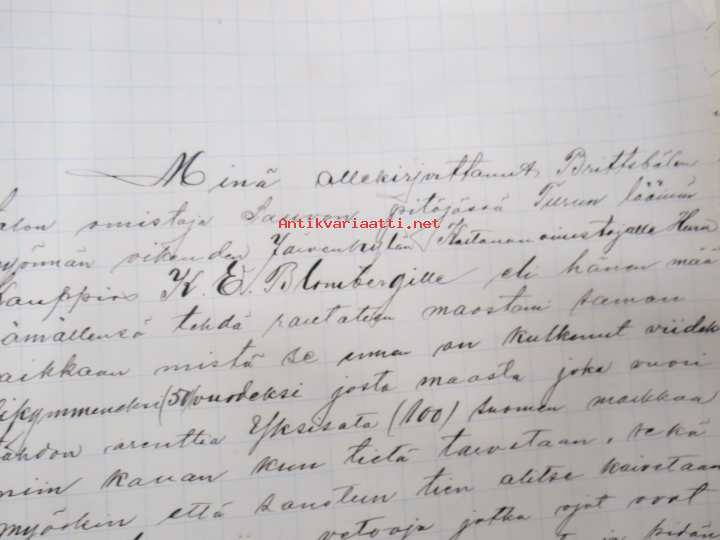 Minä allekirjoittanut Brittebölen
Antikvariaatti.net
talon omistaja Sauvon pitäjässä Turun läänin
myönnän oikeuden Järvenkylän Kartanon omistajalle Herra
Kauppias K. E. Blombergille eli hänen mää
räämällensä tehdä rautatien maastani saman
paikkaan mistä se ennen on kulkenut viidek
sikymmeneksi (50) vuodeksi josta maasta joka vuosi
tahdon arenttia Yksisata (100) Suomen markkaa
niin kauan kun tietä tarvitaan, sekä
myöskin että sanotun tien alitse kaivetaan
vetooja jotka ojat ovat
pidän